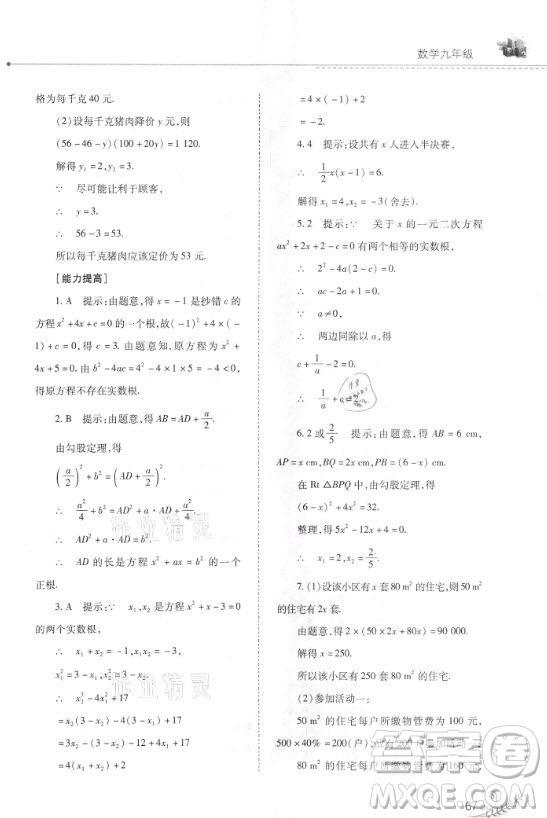 数学九年级
格为每千克 40 元.
(2)设每千克猪肉降价 y 元,则
(56-46-y)(100+20y)=1 120.
解得 y₁=2, y₂=3.
∵ 尽可能让利于顾客,
∴ y=3.
∴ 56-3=53.
所以每千克猪肉应该定价为 53 元.
[能力提高]
1. A 提示:由题意,得 x=-1 是抄错 c 的
方程 x²+4x+c=0 的一个根,故(-1)²+4×(-1)
+c=0. 解得 c=3. 由题意知,原方程为 x²+
4x+5=0. 由 b²-4ac=4²-4×1×5=-4<0,
得原方程不存在实数根.
2. B 提示:由题意,得 AB=AD+a/2.
由勾股定理,得
(a/2)²+b²=(AD+a/2)².
∴ a²/4+b²=AD²+a·AD+a²/4.
∴ AD²+a·AD=b².
∴ AD 的长是方程 x²+ax=b² 的一个
正根.
3. A 提示:∵ x₁,x₂ 是方程 x²+x-3=0
的两个实数根,
∴ x₁+x₂=-1.
x₁²=3-x₁, x₂²=3-x₂.
∴ x₂³-4x₁²+17
=x₂(3-x₂)-4(3-x₁)+17
=3x₂-(3-x₂)-12+4x₁+17
=4(x₁+x₂)+2
=4×(-1)+2
=-2.
4. 4 提示:设共有 x 人进入半决赛,
∴ 1/2 x(x-1)=6.
解得 x₁=4, x₂=-3(舍去).
5. 2 提示:∵ 关于 x 的一元二次方程
ax²+2x+2-c=0 有两个相等的实数根,
∴ 2²-4a(2-c)=0.
∴ ac-2a+1=0.
∵ a≠0,
∴ 两边同除以 a,得
c+1/a-2=0.
∴ 1/a+c=2.
6. 2 或 2/5 提示:由题意,得 AB=6 cm,
AP=x cm,BQ=2x cm,PB=(6-x) cm.
在 Rt △BPQ 中,由勾股定理,得
(6-x)²+4x²=32.
整理,得 5x²-12x+4=0.
∴ x₁=2, x₂=2/5.
7. (1)设该小区有 x 套 80 m² 的住宅,则 50 m²
的住宅有 2x 套.
由题意,得 2(50×2x+80x)=90 000.
解得 x=250.
所以该小区有 250 套 80 m² 的住宅.
(2)参加活动一:
50 m² 的住宅每户所缴物管费为 100 元,
500×40%=200(户),故有 200 户参加活动一.
80 m² 的住宅每户所缴物管费为 160 元,
作业精灵
作业精灵
答案圈
MXQE.COM
67